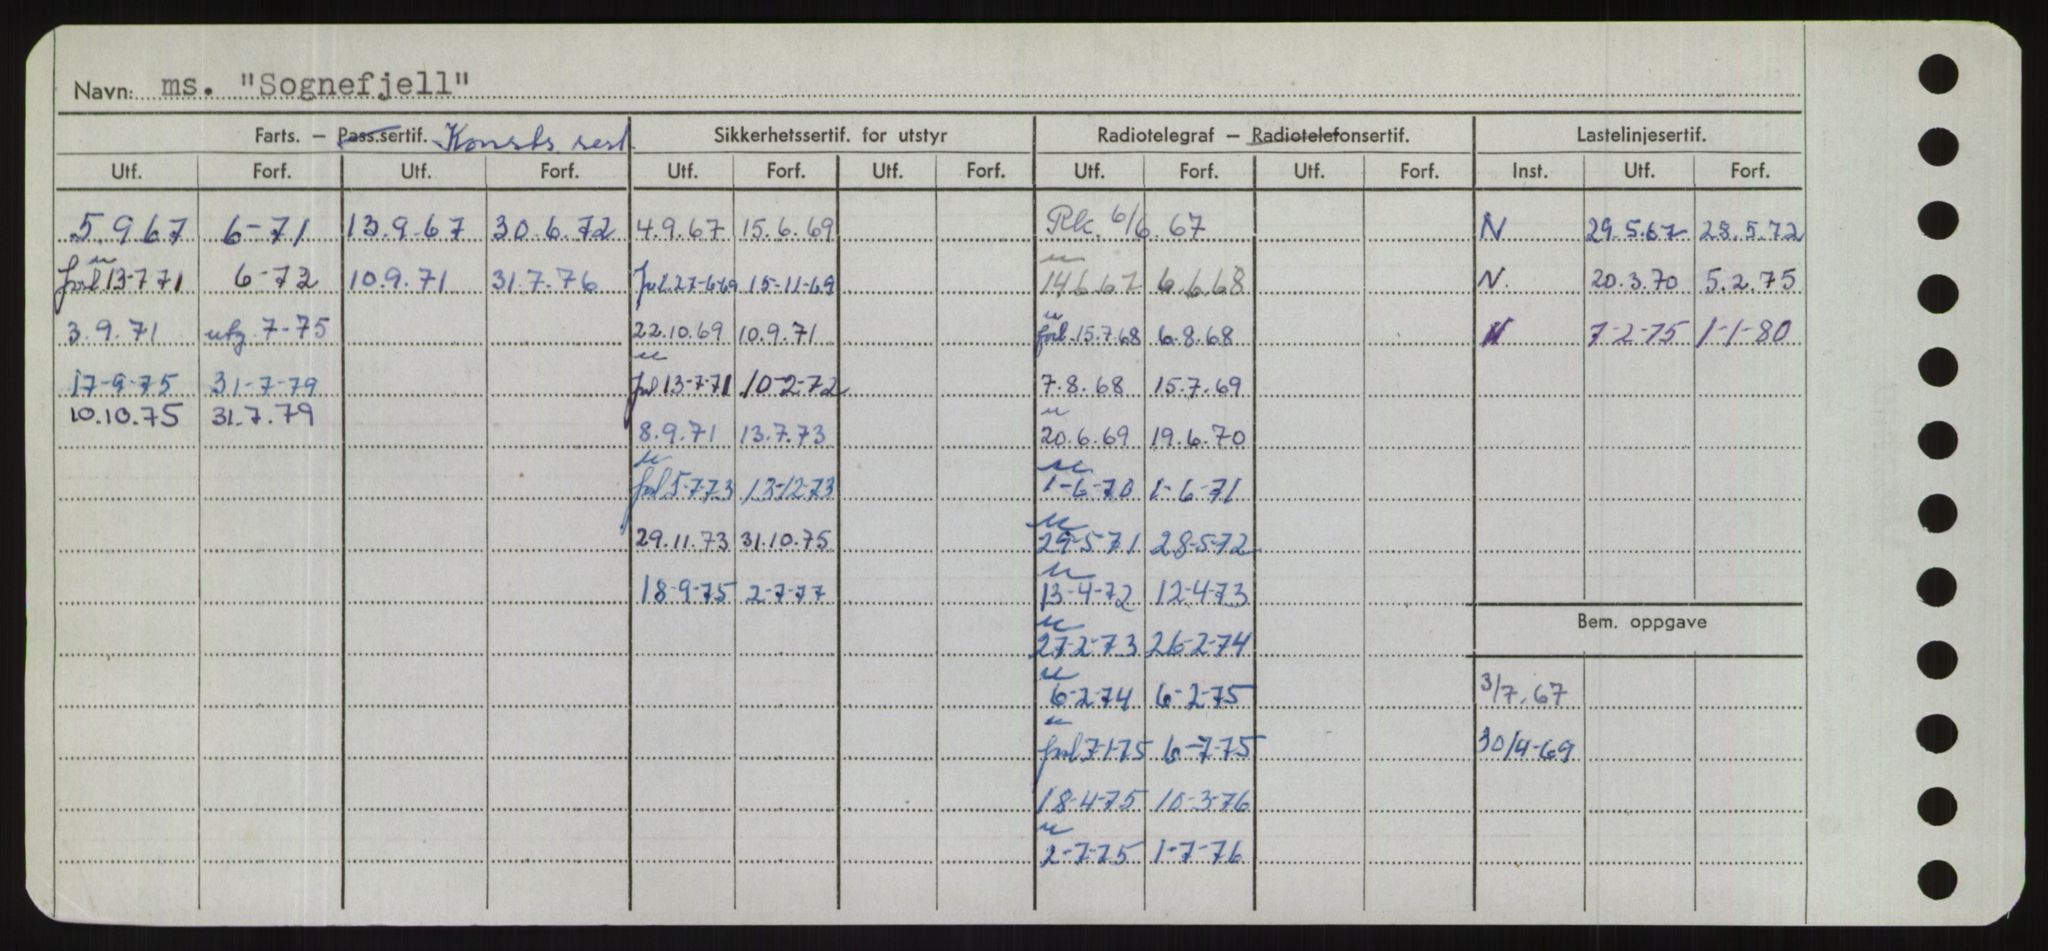 Navn: ms. "Sognefjell"
Farts. – Pass.sertif. Konstr. sert. Sikkerhetssertif. for utstyr Radiotelegraf – Radiotelefonsertif. Lastelinjesertif.
Utf. Forf. Utf. Forf. Utf. Forf. Utf. Forf. Utf. Forf. Utf. Forf. Inst. Utf. Forf.
5.9.67 6-71 13.9.67 30.6.72 4.9.67 15.6.69 Rk. 6/6.67 N 29.5.67 28.5.72
forl 13-7 71 6-72 10.9.71 31.7.76 forl. 27-6-69 15-11-69 14.6.67 6.6.68 N. 20.3.70 5.2.75
3.9.71 utg. 7-75 22.10.69 10.9.71 forl. 15.7.68 6.8.68 N 7-2-75 1-1-80
17-9-75 31-7-79 forl 13-7-71 10-2-72 7.8.68 15.7.69
10.10.75 31.7.79
8.9.71 13.7.73 20.6.69 19.6.70
forl 5-7-73 13-12-73 1-6-70 1-6-71
29.11.73 31.10.75 29-5-71 28-5-72
18-9-75 2-7-77 13-4-72 12-4-73
Bem. oppgave
27-2-73 26-2-74
6-2-74 6-2-75 3/7.67
forl 7-1-75 6-7-75 30/9-69
18-4-75 10-3-76
2-7-75 1-7-76